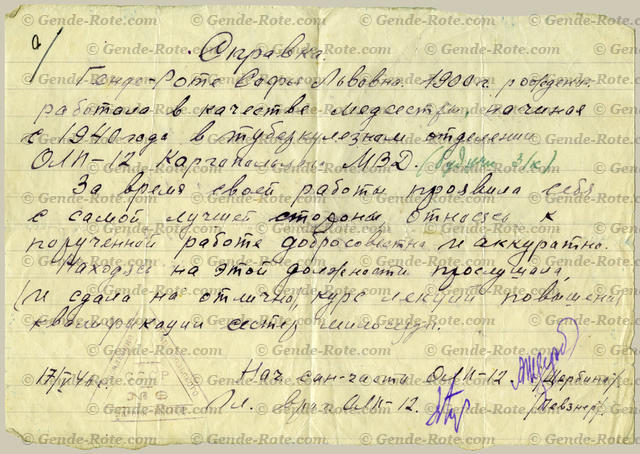 Справка.
Генде-Роте Софья Львовна 1900 г. рождения
работала в качестве медсестры, начиная
с 1940 года в туберкулезном отделении
ОЛП-12 Каргопольлага МВД. (будучи з/к)
За время своей работы проявила себя
с самой лучшей стороны, относясь к
порученной работе добросовестно и аккуратно.
Находясь на этой должности прослушала
и сдала на отлично курс лекций повышения
квалификации сестер
Нач сан-части ОЛП-12 /Щербина/
Гл. врач ОЛП-12. /Певзнер/
© Gende-Rote.com